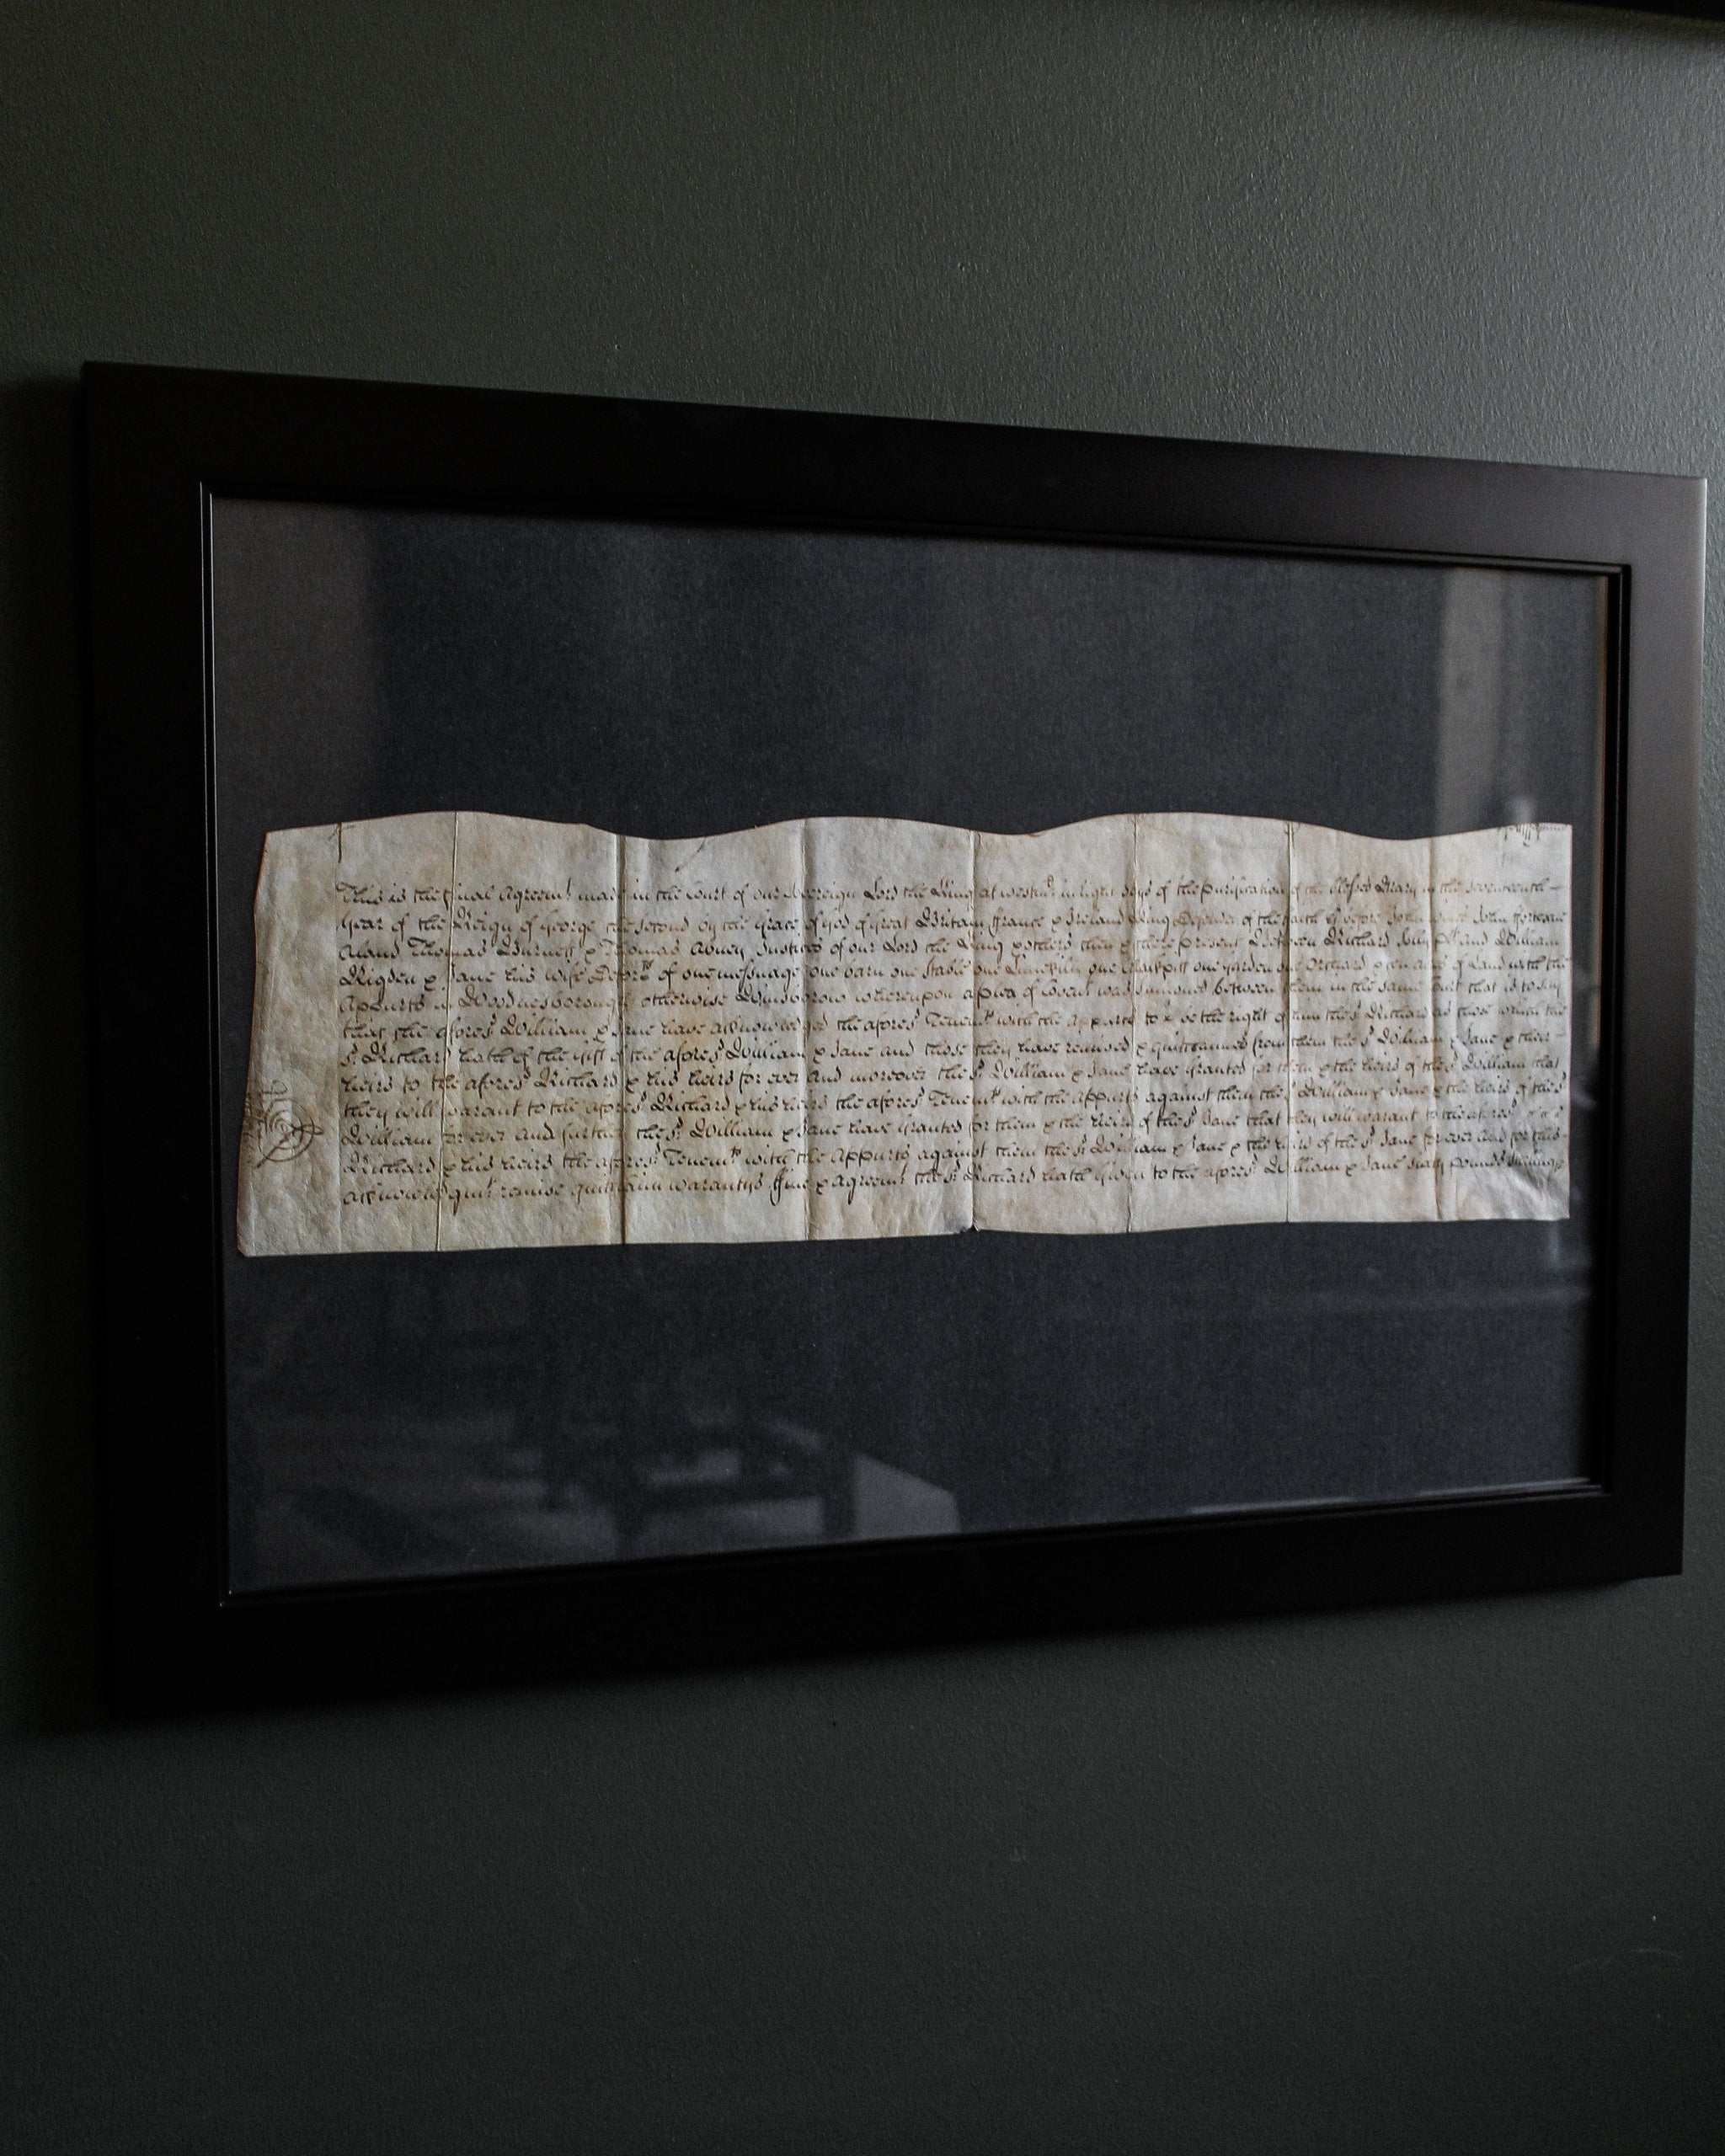 This is the final Agreemt made in the Court of our Sovereign Lord the King at Westmr in Eight Days of the Purification of the Blessed Mary in the Seventeenth
Year of the Reign of George the Second by the Grace of God of Great Britain France & Ireland King Defender of the Faith &c before John Willes John Fortescue
Aland Thomas Burnett & Thomas Abney Justices of our Lord the King & others then & there present Between Richard plt and William
Rigden & Jane his wife Deforts of one messuage one barn one stable one one one Garden one Orchard & ten acres of Land with the
Appurts in Woodnesborough otherwise Winsborow whereupon a plea of Covent was sumoned between them in the same Court that is to say
that the afores'd William & Jane have acknowledged the afores'd Tenemts with the Appurts to be the right of him the sd Richard as those which the
sd Richard hath of the Gift of the afores'd William & Jane and those they have remised & quitclaimed from them the sd William & Jane & their
heirs to the afores'd Richard & his heirs for ever And moreover the sd William & Jane have Granted for them & the heirs of the sd William that
they will warrant to the afores'd Richard & his heirs the afores'd Tenemts with the Appurts against them the sd William & Jane & the heirs of the sd
William for ever And further the sd William & Jane have Granted for them & the heirs of the sd Jane that they will warant to the afores'd
Richard & his heirs the afores'd Tenemts with the Appurts against them the sd William & Jane & the heirs of the sd Jane for ever and for this
acknowledgmt remise quitclaim warantys fine & Agreemt the sd Richard hath Given to the afores'd William & Jane sixty pounds Sterling